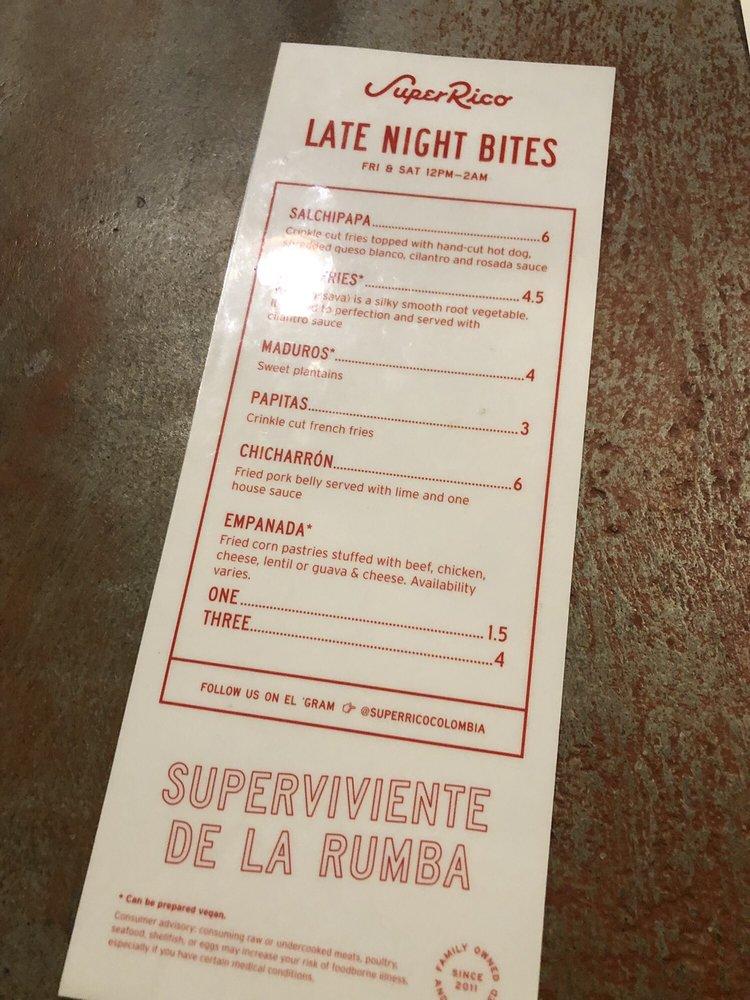 SuperRico
LATE NIGHT BITES
FRI & SAT 12PM–2AM
SALCHIPAPA 6
Crinkle cut fries topped with hand-cut hot dog,
shredded queso blanco, cilantro and rosada sauce
FRIES* 4.5
is a silky smooth root vegetable.
to perfection and served with
cilantro sauce
MADUROS* 4
Sweet plantains
PAPITAS 3
Crinkle cut french fries
CHICHARRÓN 6
Fried pork belly served with lime and one
house sauce
EMPANADA*
Fried corn pastries stuffed with beef, chicken,
cheese, lentil or guava & cheese. Availability
varies.
ONE 1.5
THREE 4
FOLLOW US ON EL 'GRAM @SUPERRICOCOLOMBIA
SUPERVIVIENTE
DE LA RUMBA
* Can be prepared vegan.
Consumer advisory: consuming raw or undercooked meats, poultry,
seafood, shellfish, or eggs may increase your risk of foodborne illness,
especially if you have certain medical conditions.
FAMILY OWNED
SINCE
2011